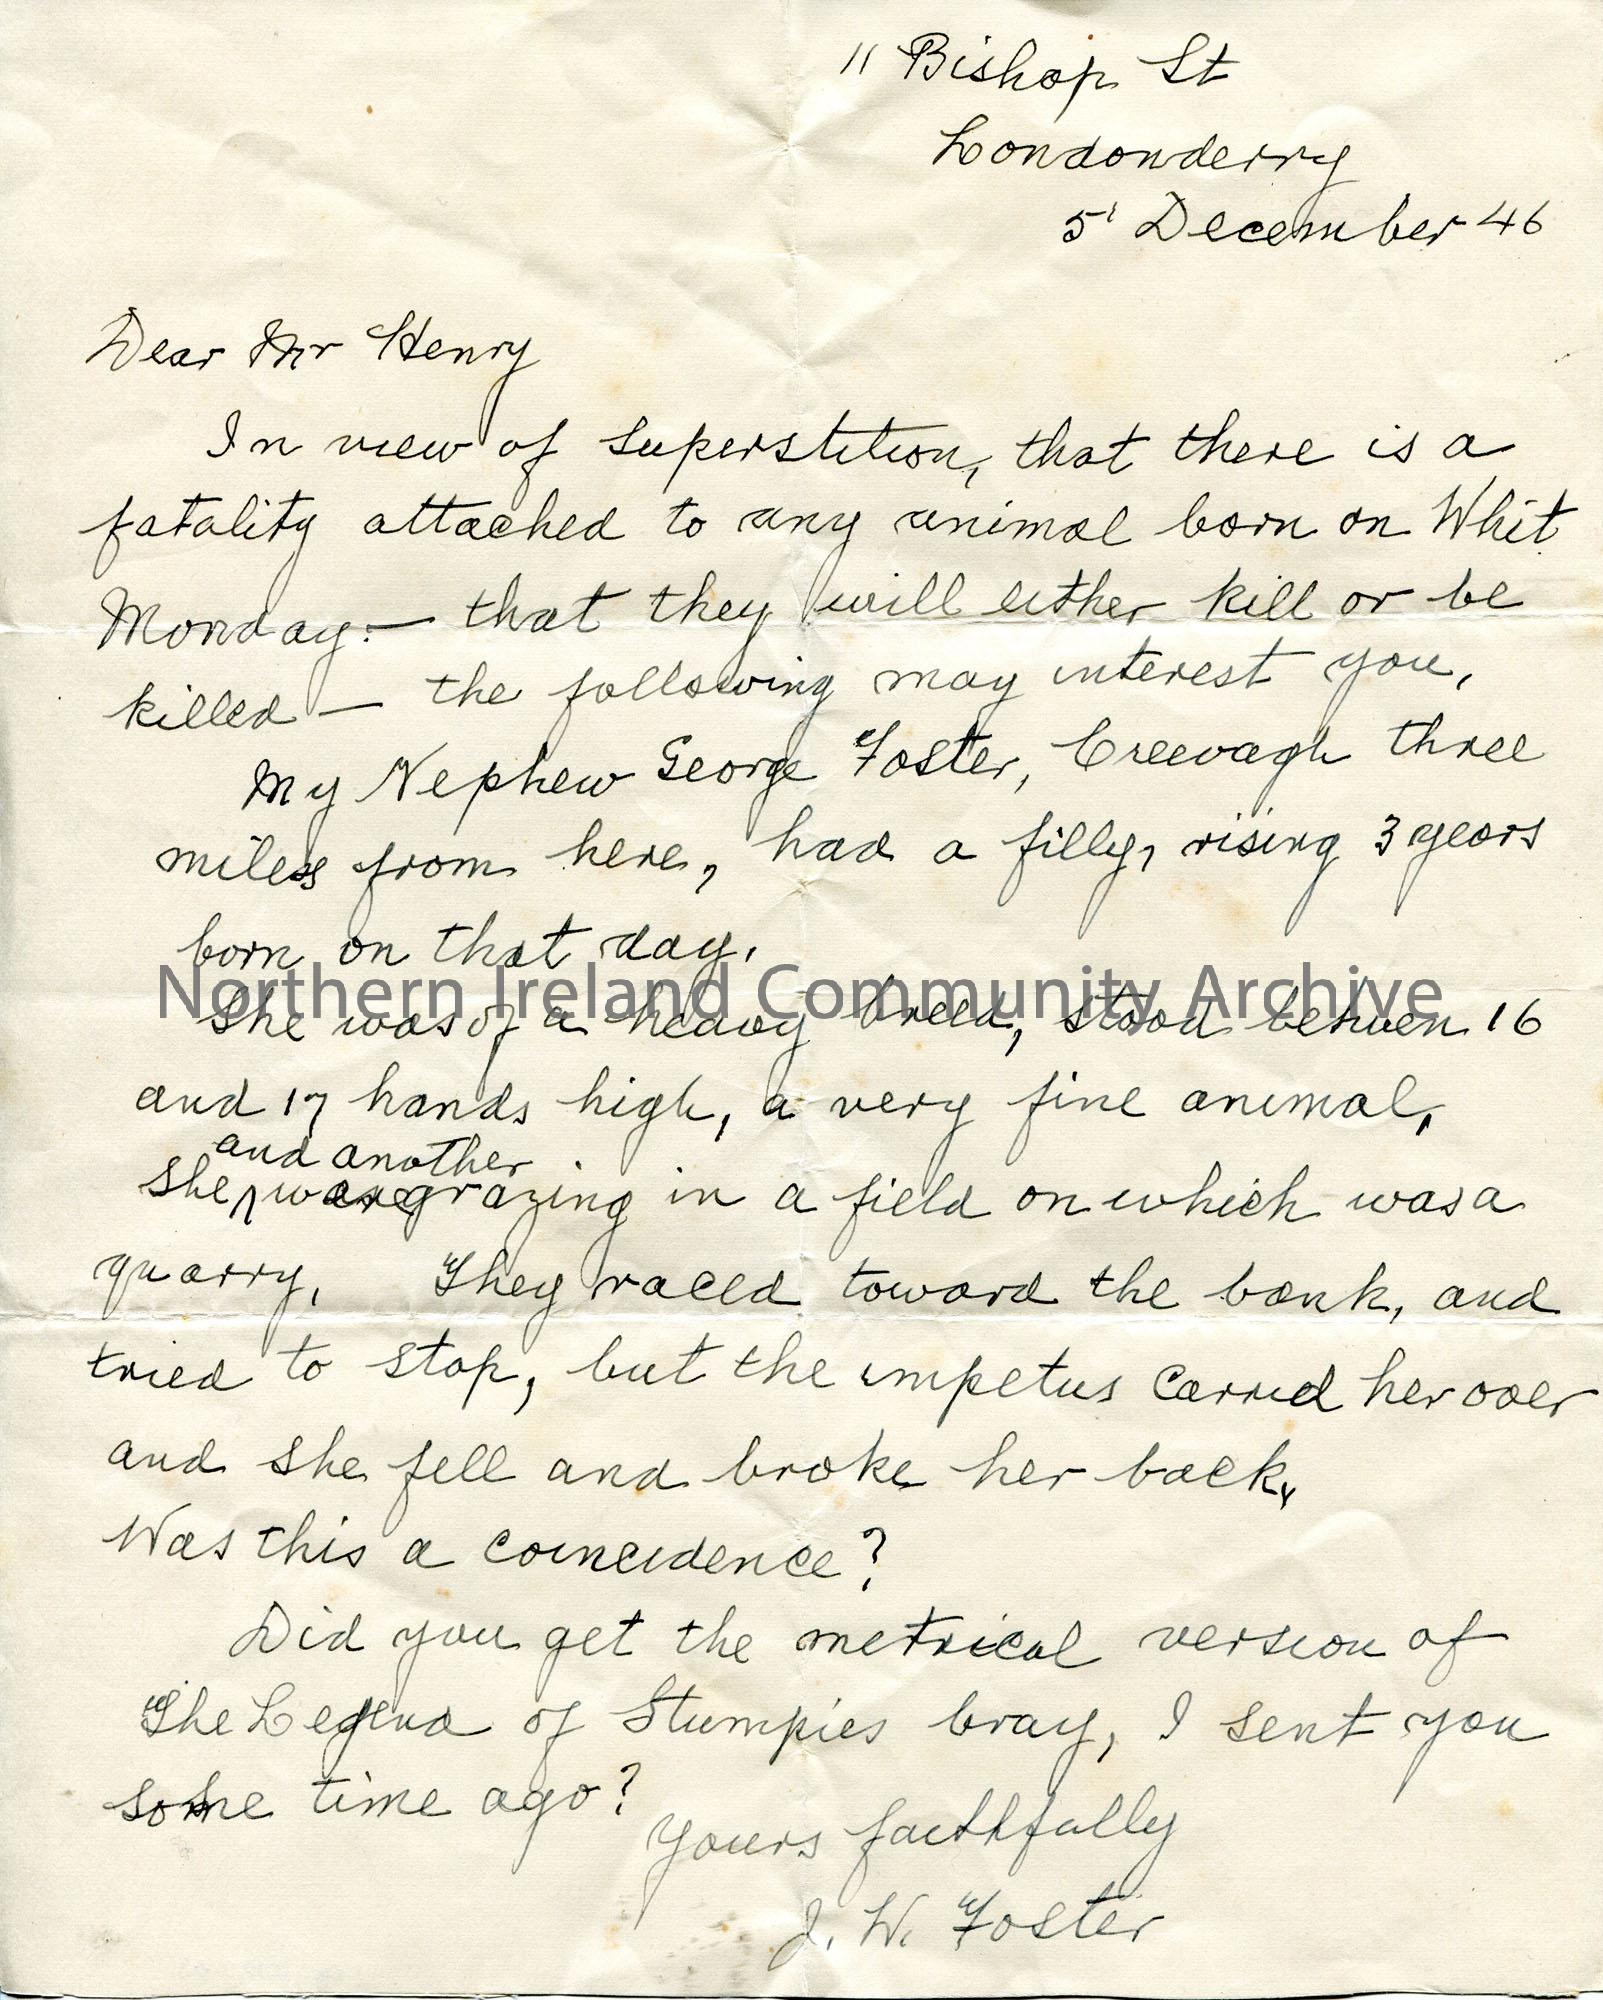 11 Bishop St
Londonderry
5' December 46
Dear Mr Henry
In view of superstition, that there is a
fatality attached to any animal born on Whit
Monday:- that they will either kill or be
killed - the following may interest you,
My Nephew George Foster, Creevagh three
miles from here, had a filly, rising 3 years
born on that day.
Northern Ireland Community Archive
She was of a heavy breed, stood between 16
and 17 hands high, a very fine animal,
and another
She were grazing in a field on which was a
quarry, They raced toward the bank, and
tried to stop, but the impetus carried her over
and she fell and broke her back,
Was this a coincidence?
Did you get the metrical version of
The Legend of Stumpies bray, I sent you
some time ago?
Yours faithfully
J. W. Foster